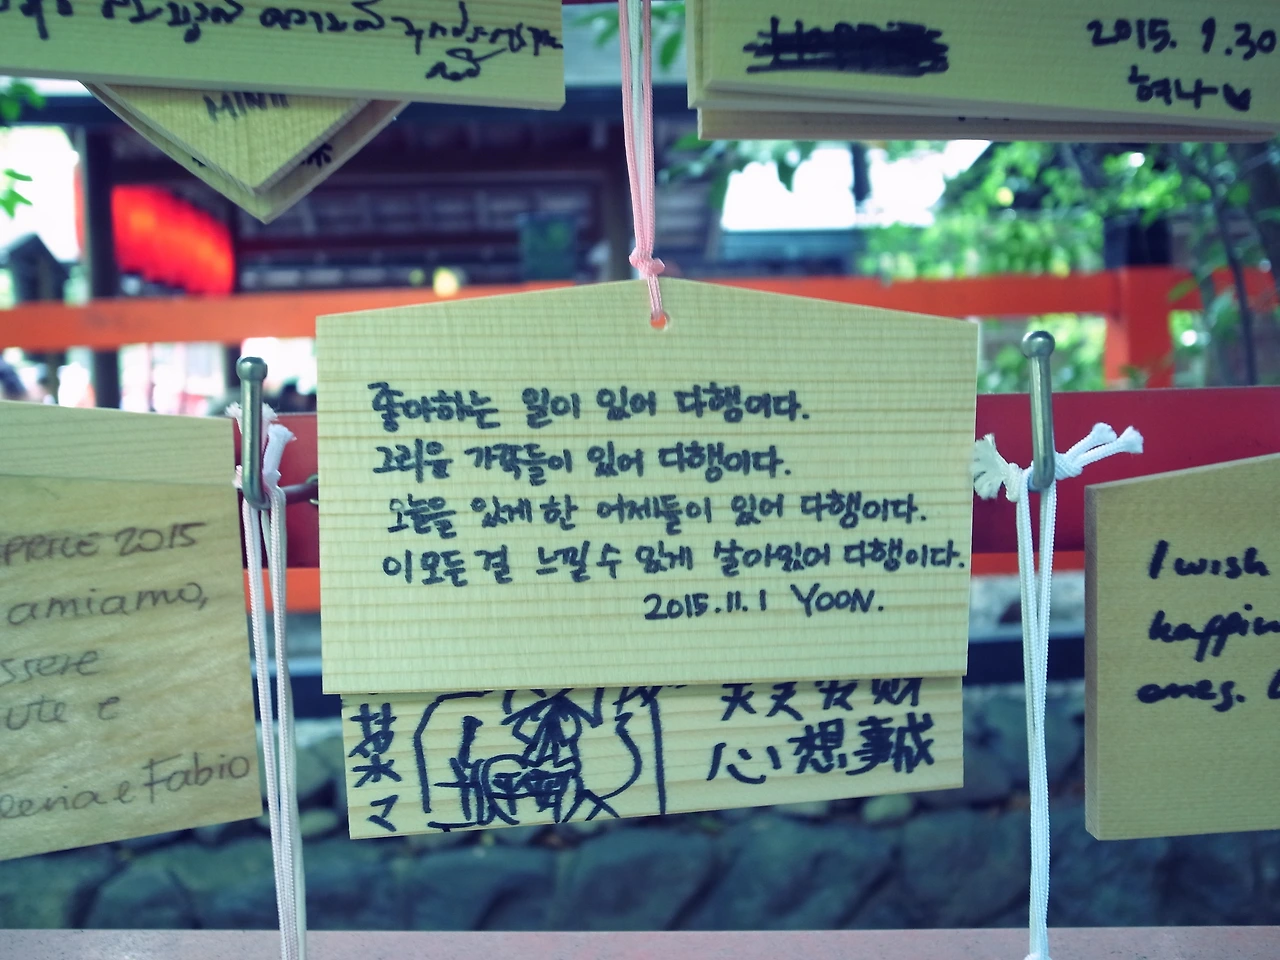 MINJI
2015. 9.30
혀나
좋아하는 일이 있어 다행이다.
그리울 가족들이 있어 다행이다.
오늘을 있게 한 어제들이 있어 다행이다.
이 모든 걸 느낄 수 있게 살아있어 다행이다.
2015.11.1 YOON.
天天发财
心想事誠
APRILE 2015
amiamo,
ssere
ute e
e Fabio
I wish
happin
ones.